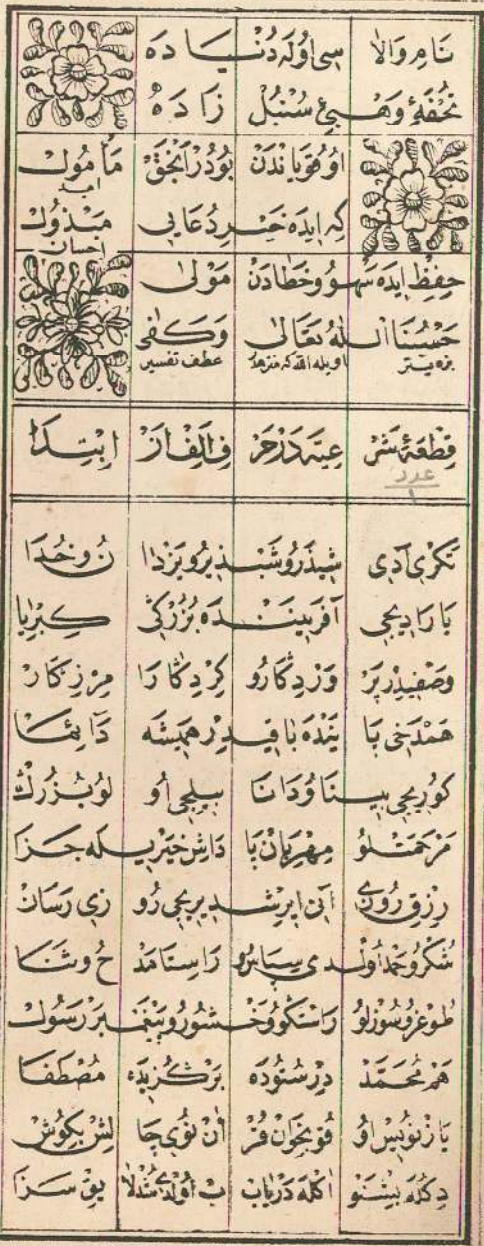 نَامِ وَالَا سِی اُولَه دُنْیَا دَه
تُحْفَهٔ وَهْبِیِٔ سُنْبُل زَادَهْ
اُوقُویَانْدَنْ بُودُرْ اَنْجَقْ مَأْمُولْ
امید
کِه اِیدَه خَیْر دُعَایِی مَبْذُولْ
احسان
حِفْظ اِیدَه سَهْو وُ خَطَادَنْ مَوْلٰی
حَسْبُنَا اللّٰهُ تَعَالٰی وَکَفٰی
بزه یتر اویله الله که منزهدر عطف تفسیر
قِطْعَهٔ شَرْعِیَّه دَرْ حَرْفِ اَلِفْ اَزْ اِبْتِدَا
عدد
١
تَکْرِی آدِی شِیذَرُ و شَبْذِیرُ و یَزْدَانُ و خُدَا
یَارَادِیجِی آفَرِینَنْدَه بُزُرْکِی کِبْرِیَا
وَصْفِیدِرْ پَرْوَرْدِکَارُ و کِرْدِکَارَا مِرْزِکَارْ
هَمْ دَخِی پَایَنْدَه بَاقِیدِرْ هَمِیشَه دَائِمَا
کُورِیجِی بِینَا وُ دَانَا بِیلِیجِی اُولُو بُزُرْکْ
مَرْحَمَتْلُو مِهْرِبَانْ پَادَاشْ خَیْرِیلَه جَزَا
رِزْقِ رُوزِی آنِی اِیرِشْدِیرِیجِی رُوزِی رَسَانْ
شُکْرُ و حَمْد اُولْدِی سِپَاسُ و رَاسِتَا مَدْحُ و ثَنَا
طُوغْرُو سُوزْلُو رَاسْتْکُو وَخْشُورُ و پَیْغَمْبَرْ رَسُولْ
هَمْ مُحَمَّدْ دِرْ سُتُودَه بَرْکُزِیدَه مُصْطَفَا
یَازْ نُوِیسْ اُوقُو بِخَوَانْ قُرْآنْ نُوِی چَالِشْ بِکُوشْ
دِکْلَه بِشْنَو اَکْلَه دَرْیَابْ اُولْدِی لَایِقْ سَزَا